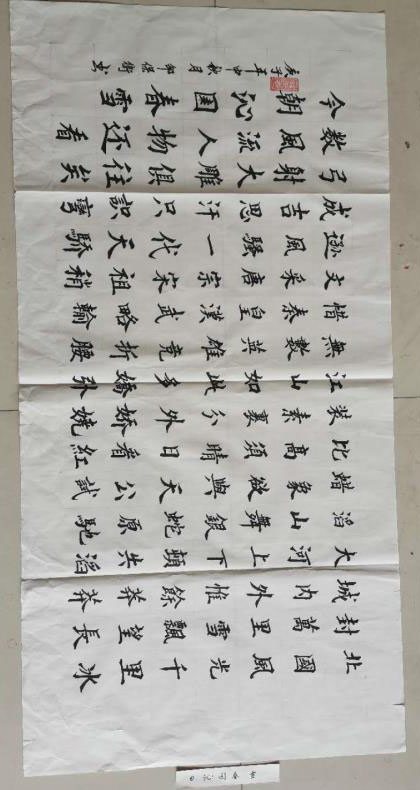 北國風光千里冰
封萬里雪飄望長
城內外惟餘莽莽
大河上下頓失滔
滔山舞銀蛇原馳
蜡象欲與天公試
比高須晴日看紅
裝素裹分外嬌嬈
江山如此多嬌引
無數英雄競折腰
惜秦皇漢武略輸
文采唐宗宋祖稍
遜風騷一代天驕
成吉思汗只識彎
弓射大雕俱往矣
數風流人物還看
今朝沁園春雪
庚子年中秋月保衛